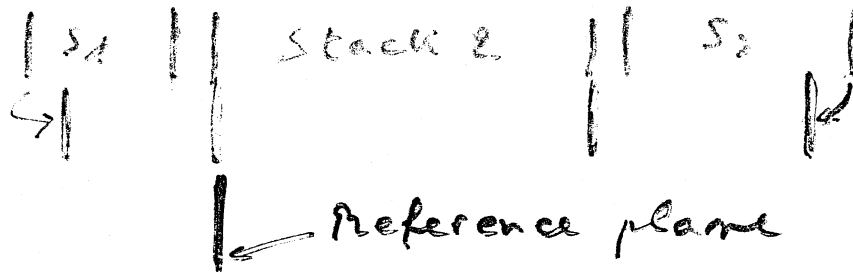 S1 Stack 2 S3
Reference plane